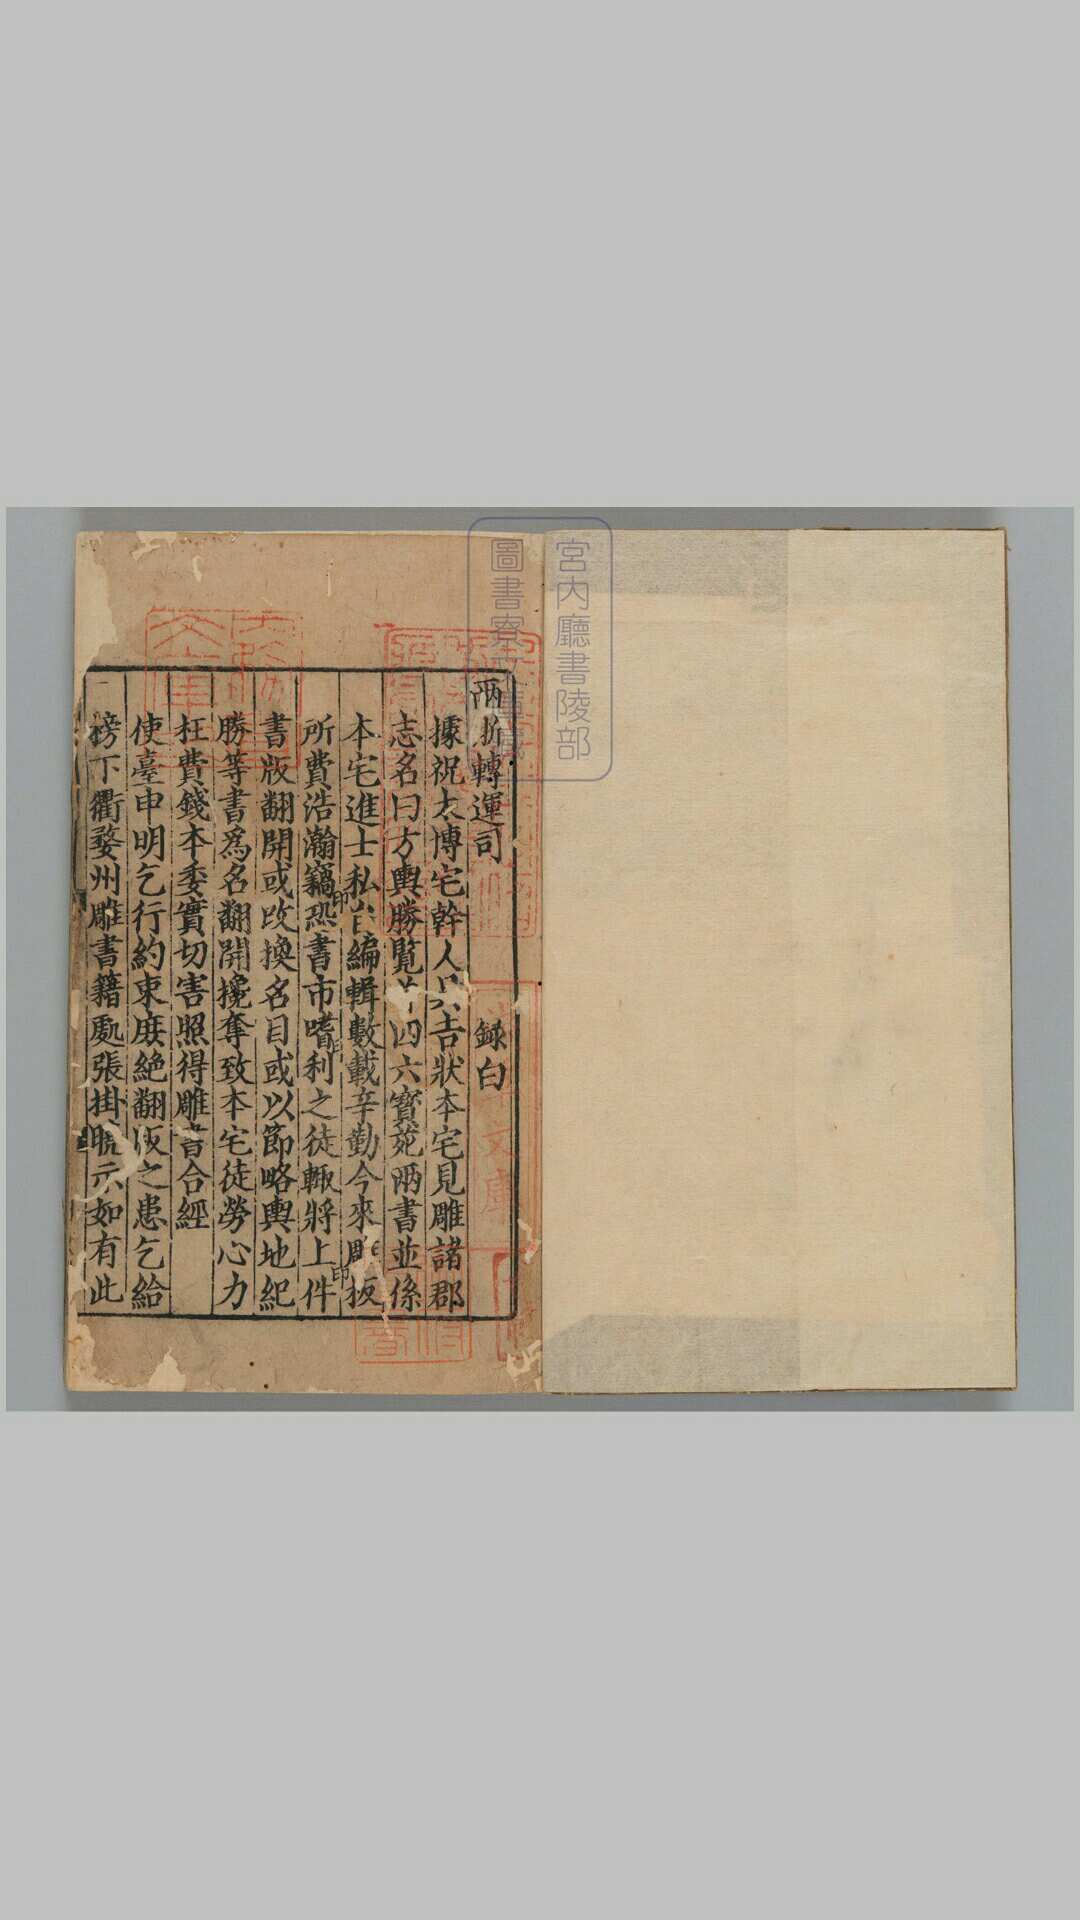 兩浙轉運司　録白
據祝太傅宅幹人吳吉狀本宅見雕諸郡
志名曰方輿勝覽并四六寳苑兩書並係
本宅進士私自編輯數載辛勤今來雕板
所費浩瀚竊恐書市嗜利之徒輙將上件
書版翻開或改換名目或以節略輿地紀
勝等書爲名翻開攙奪致本宅徒勞心力
枉費錢本委實切害照得雕書合經
使臺申明乞行約束庻絶翻版之患乞給
榜下衢婺州雕書籍處張掛曉示如有此
宮内廳書陵部
圖書寮文庫藏